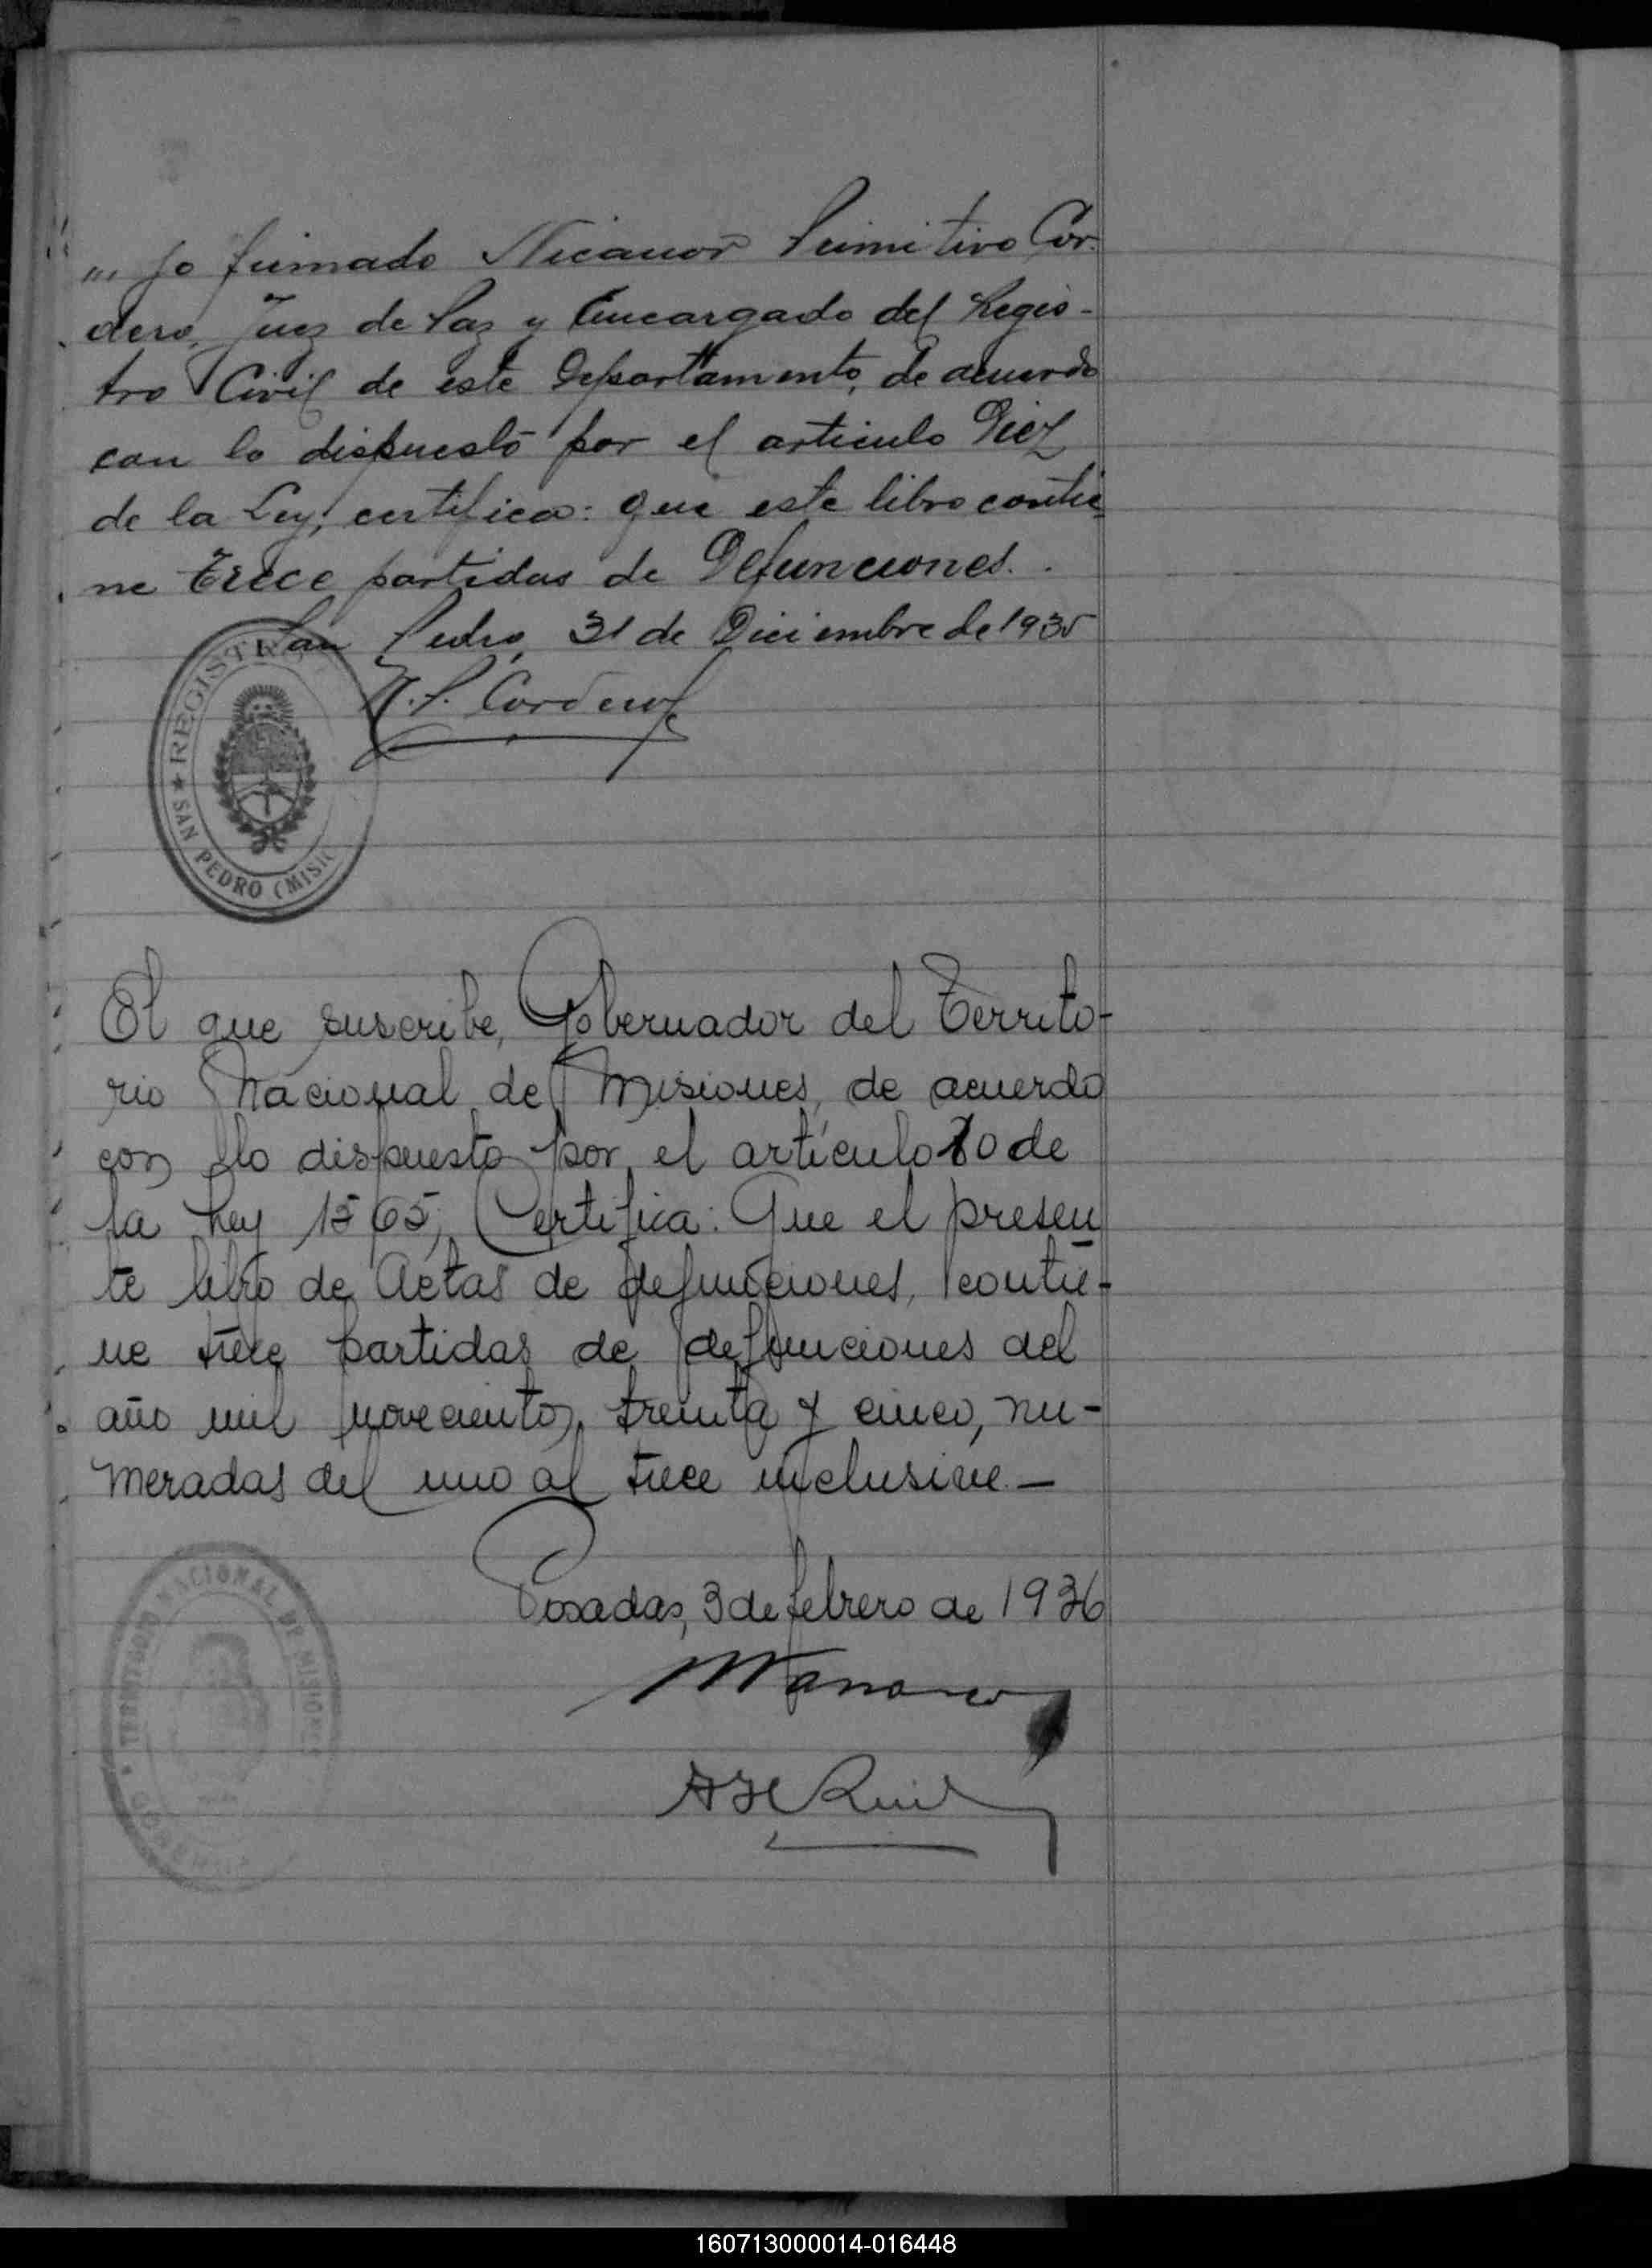 "' jo firmado Nicanor Primitivo Cor-
dero, Juez de Paz y Encargado del Regis-
tro Civil de este Departamento, de acuerdo
con lo dispuesto por el articulo Diez
de la Ley, certifica: que este libro contie
ne trece partidas de Defunciones.
San Pedro, 31 de Diciembre de 1935
N. P. Cordero
REGISTR
★ SAN PEDRO (MISI
El que suscribe, Gobernador del Territo-
rio Nacional de Misiones, de acuerdo
con lo dispuesto por el artículo 10 de
la Ley 1565, Certifica: Que el presen
te libro de Actas de defunciones, contie-
ne trece partidas de defunciones del
año mil novecientos treinta y cinco, nu-
meradas del uno al trece inclusive.—
Posadas, 3 de febrero de 1936
TERRITORIO NACIONAL DE MISIONES
A H Ruiz
160713000014-016448